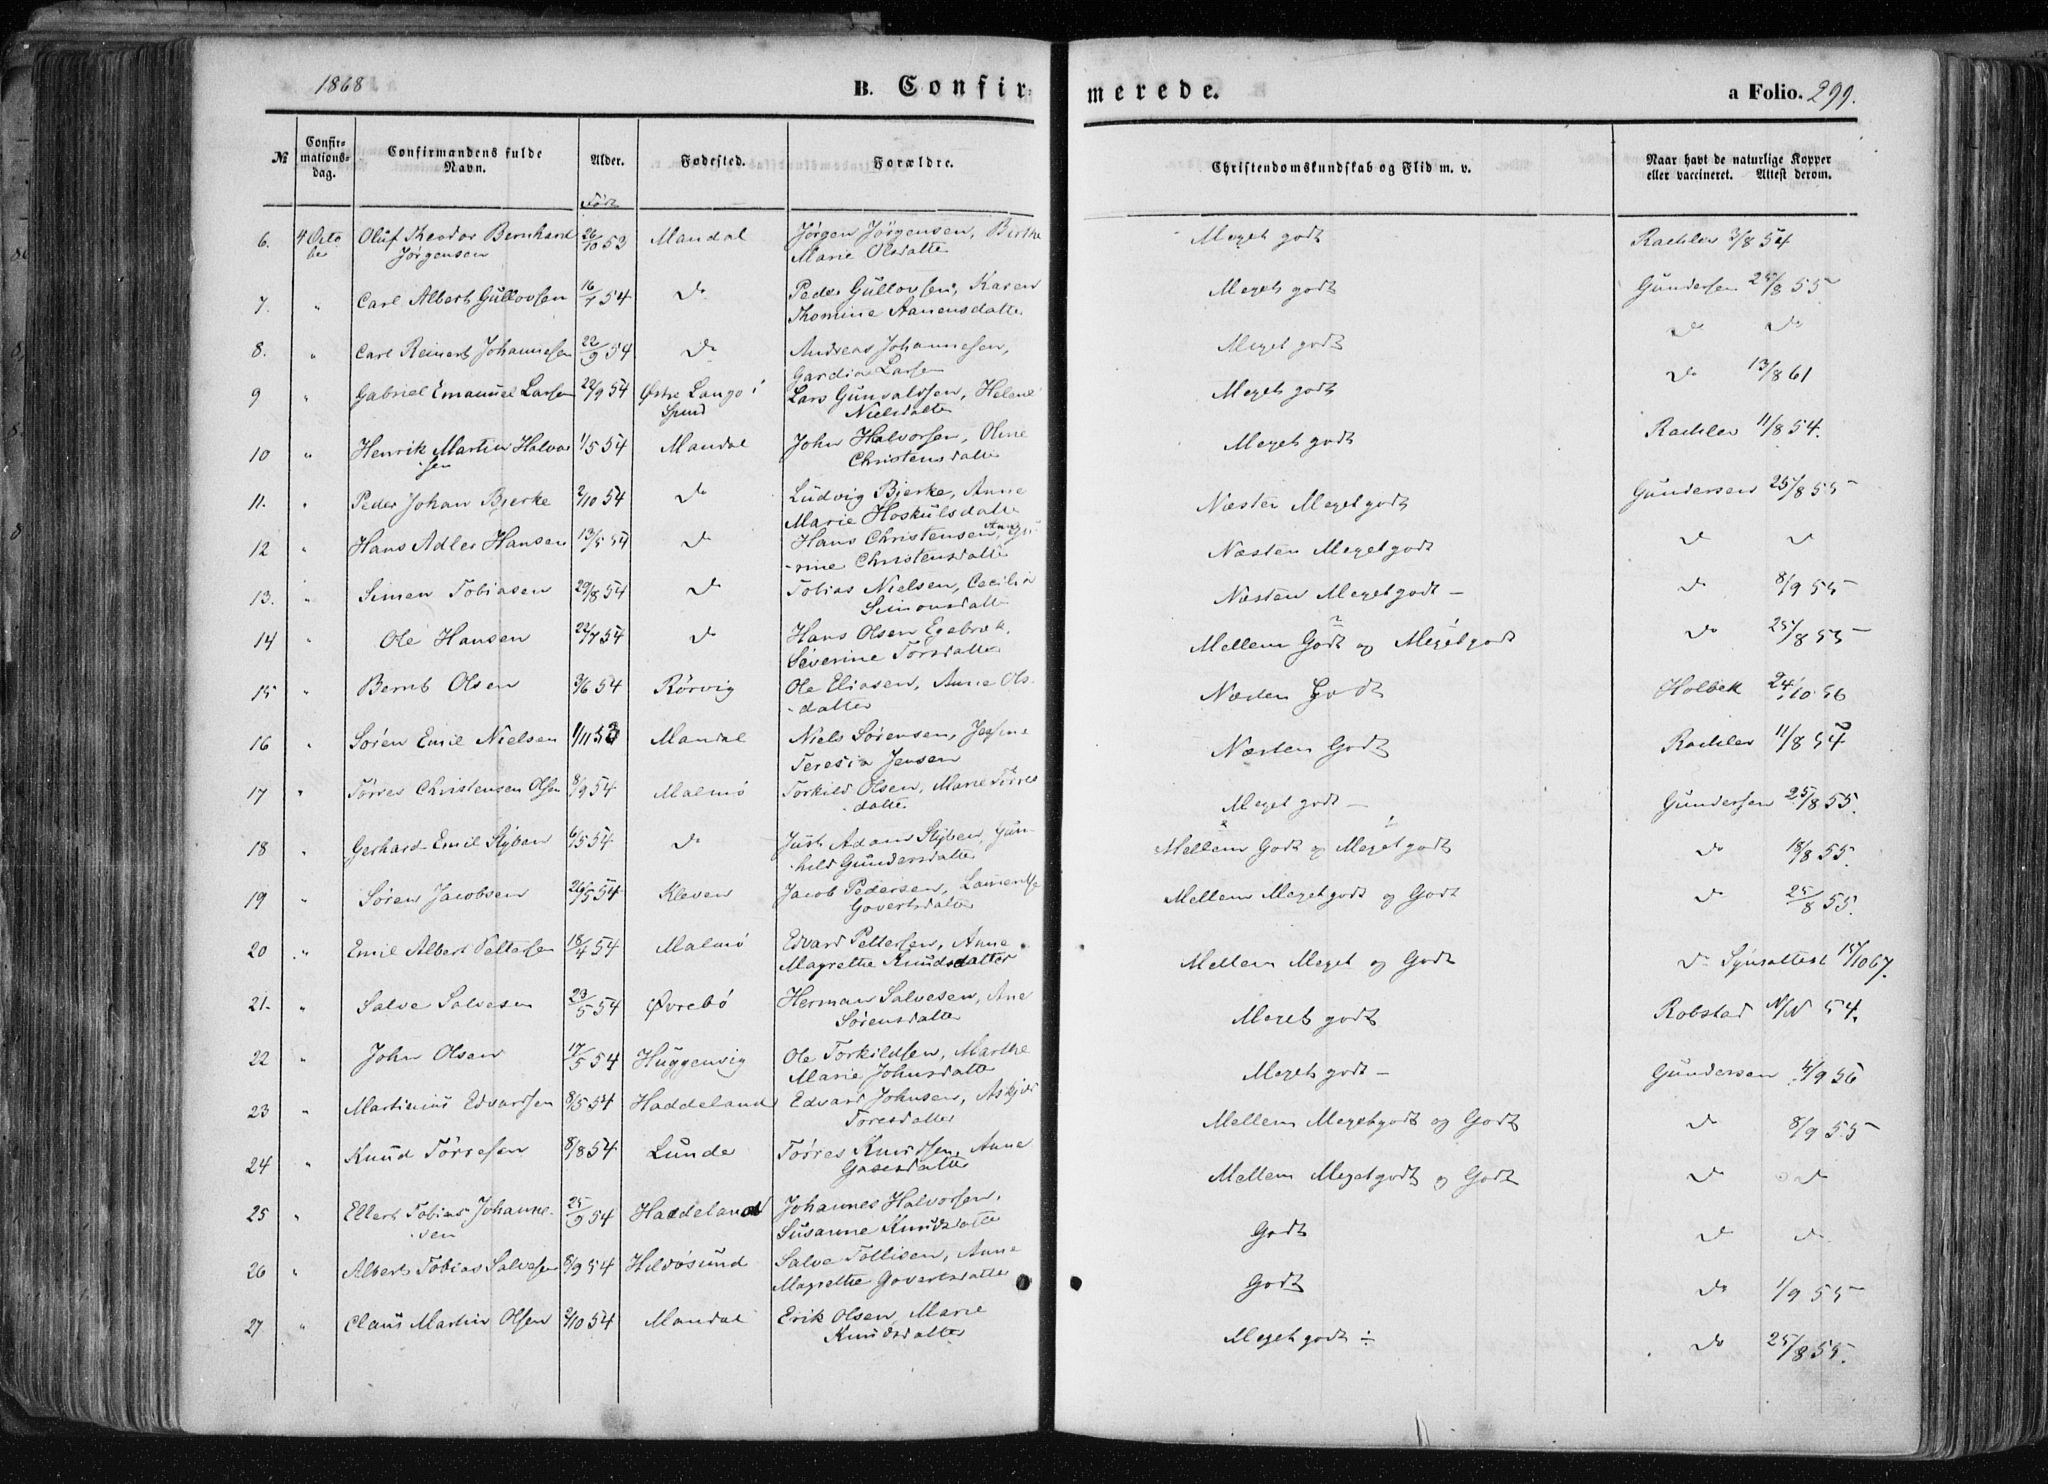 1868 B. Confirmerede. a Folio. 299.
№ Confirmationsdag. Confirmandens fulde Navn. Alder. Fødested. Forældre. Christendomskundskab og Flid m. v. Naar havt de naturlige Kopper eller vaccineret. Attest derom.
Født
6. 4 Octo Oluf Theodor Bernhard 26/10 53 Mandal Jørgen Jørgensen, Birthe Meget godt 3/8 54
ber Jørgensen Marie Olsdatter
7. " Carl Albert Gullovsen 16/1 54 Do Peder Gullovsen, Karen Meget godt Gundersen 25/8 55
Thomine Aanensdatter
8. " Carl Reinert Johannesen 22/9 54 Do Andreas Johannesen, Meget godt Do Do
Gardia Larsen
9 " Gabriel Emanuel Larsen 22/9 54 Østre Lango i Lars Gunvaldsen, Helene Meget godt Do 13/8 61
Nielsdatter
10 " Henrik Martin Halvor 1/5 54 Mandal John Halvorsen, Oline Meget godt 11/8 54.
sen Christensdatter
11. " Peder Johan Bjerke 2/10 54 Do Ludvig Bjerke, Anne Næsten Meget godt Gundersen 25/8 55
Marie Hoskulsdatter
12 " Hans Adler Hansen 13/5 54 Do Hans Christensen, Anne Gu Næsten Meget godt Do Do
rine Christensdatter
13. " Simen Tobiasen 29/8 54 Do Tobias Nielsen, Cecilia Næsten Meget godt – Do 8/9 55
Simonsdatter
14 " Ole Hansen 22/7 54 Do Hans Olsen Egebræk, Mellem Godt og Meget godt Do 25/8 55
Severine Torsdatter
15 " Bernt Olsen 3/6 54 Rørvig Ole Eliasen, Anne Ols- Næsten Godt Holbek 24/10 56
datter
16 " Søren Emil Nielsen 1/11 53 Mandal Niels Sørensen, Næsten Godt 11/8 54
Teresia Jensen
17 " Tørres Christensen Olsen 8/9 54 Malmø Torkild Olsen, Marie Tørres Meget godt – Gundersen 25/8 55.
datter
18 " Gerhard Emil Stÿben 6/5 54 Do Just Adam Stÿben, Gun- Mellem Godt og Meget godt Do 18/8 55.
hild Gundersdatter
19 " Søren Jacobsen 26/5 54 Kleven Jacob Pedersen, Mellem Meget godt og Godt Do 25/8 55.
Govertsdatter
20 " Emil Albert Pettersen 18/4 54 Malmø Edvard Pettersen, Anne Mellem Meget og Godt Do Synsattest 15/10 67.
Magrethe Knudsdatter
21. " Salve Salvesen 23/5 54 Øvrebø Herman Salvesen, Ane Meget godt Robstad N/N 54.
Sørensdatter
22 " John Olsen 17/5 54 Huggenvig Ole Torkildsen, Marthe Meget godt – Gundersen 4/9 56
Marie Johnsdatter
23 " Martinius Edvardsen 8/5 54 Haddeland Edvard Johnsen, Askjer Mellem Meget godt og Godt Do 8/9 55
Toresdatter
24 " Knud Tørresen 8/8 54 Lunde Tørres Knudsen, Anne Mellem Meget godt og Godt Do Do
25 " Ellert Tobias Johanne- 25/9 54 Haddeland Johannes Halvorsen, Godt Do Do
sen Susanne Knudsdatter
26 " Albert Tobias Salvesen 8/9 54 Hildøsund Salve Tollisen, Anne Godt Do 1/9 55
Magrethe Govertsdatter
27 " Claus Martin Olsen 2/10 54 Mandal Erik Olsen, Marie Meget godt ÷ Do 25/8 55.
Knudsdatter